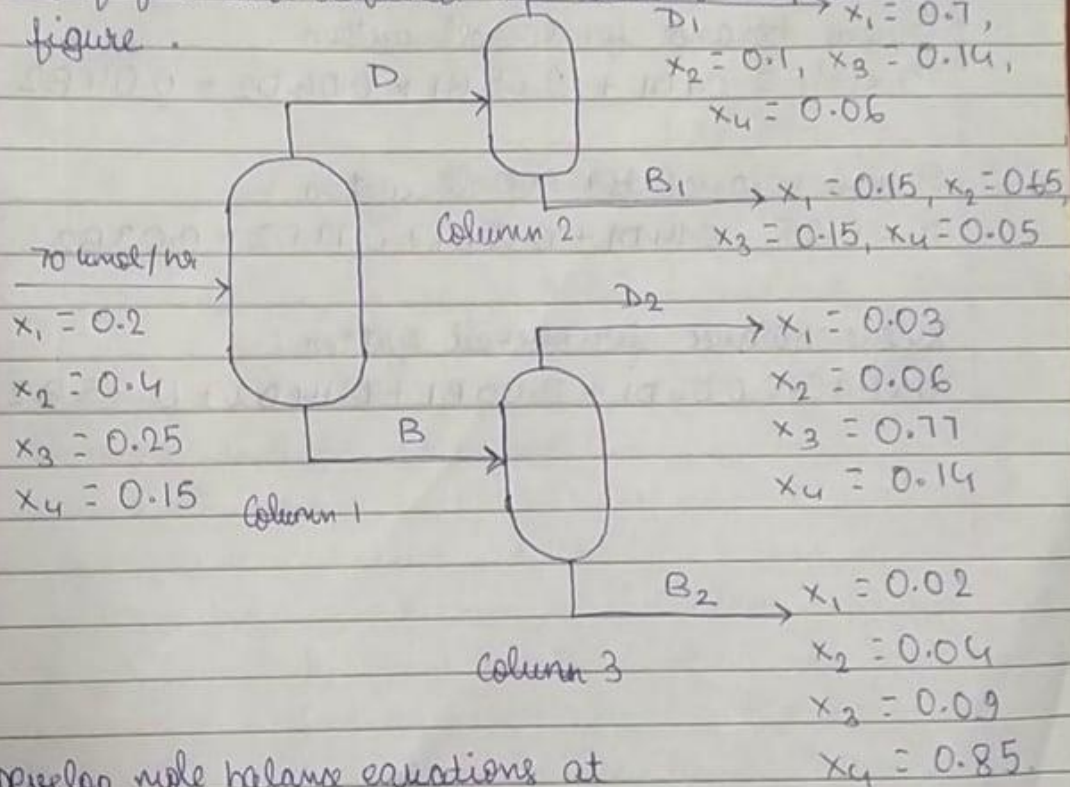 figure.
D
D1
x1 = 0.7,
x2 = 0.1, x3 = 0.14,
x4 = 0.06
B1
x1 = 0.15, x2 = 0.65,
x3 = 0.15, x4 = 0.05
Column 2
70 kmol/hr
x1 = 0.2
x2 = 0.4
x3 = 0.25
x4 = 0.15
Column 1
B
D2
x1 = 0.03
x2 = 0.06
x3 = 0.77
x4 = 0.14
B2
x1 = 0.02
x2 = 0.04
x3 = 0.09
x4 = 0.85
Column 3
mole balance equations at